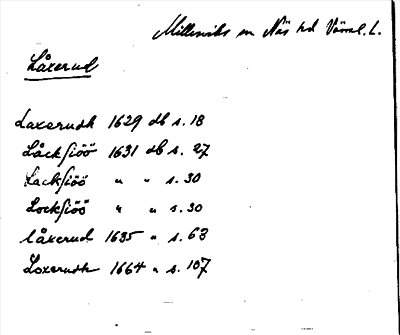 Millesviks sn Näs hd Värml. L.
Låxerud
Laxerudh 1629 db s. 18
Låckſiöö 1631 db s. 27
Lackſiöö " " s. 30
Lockſiöö " " s. 30
låxerud 1635 " s. 63
Loxerudh 1664 " s. 107